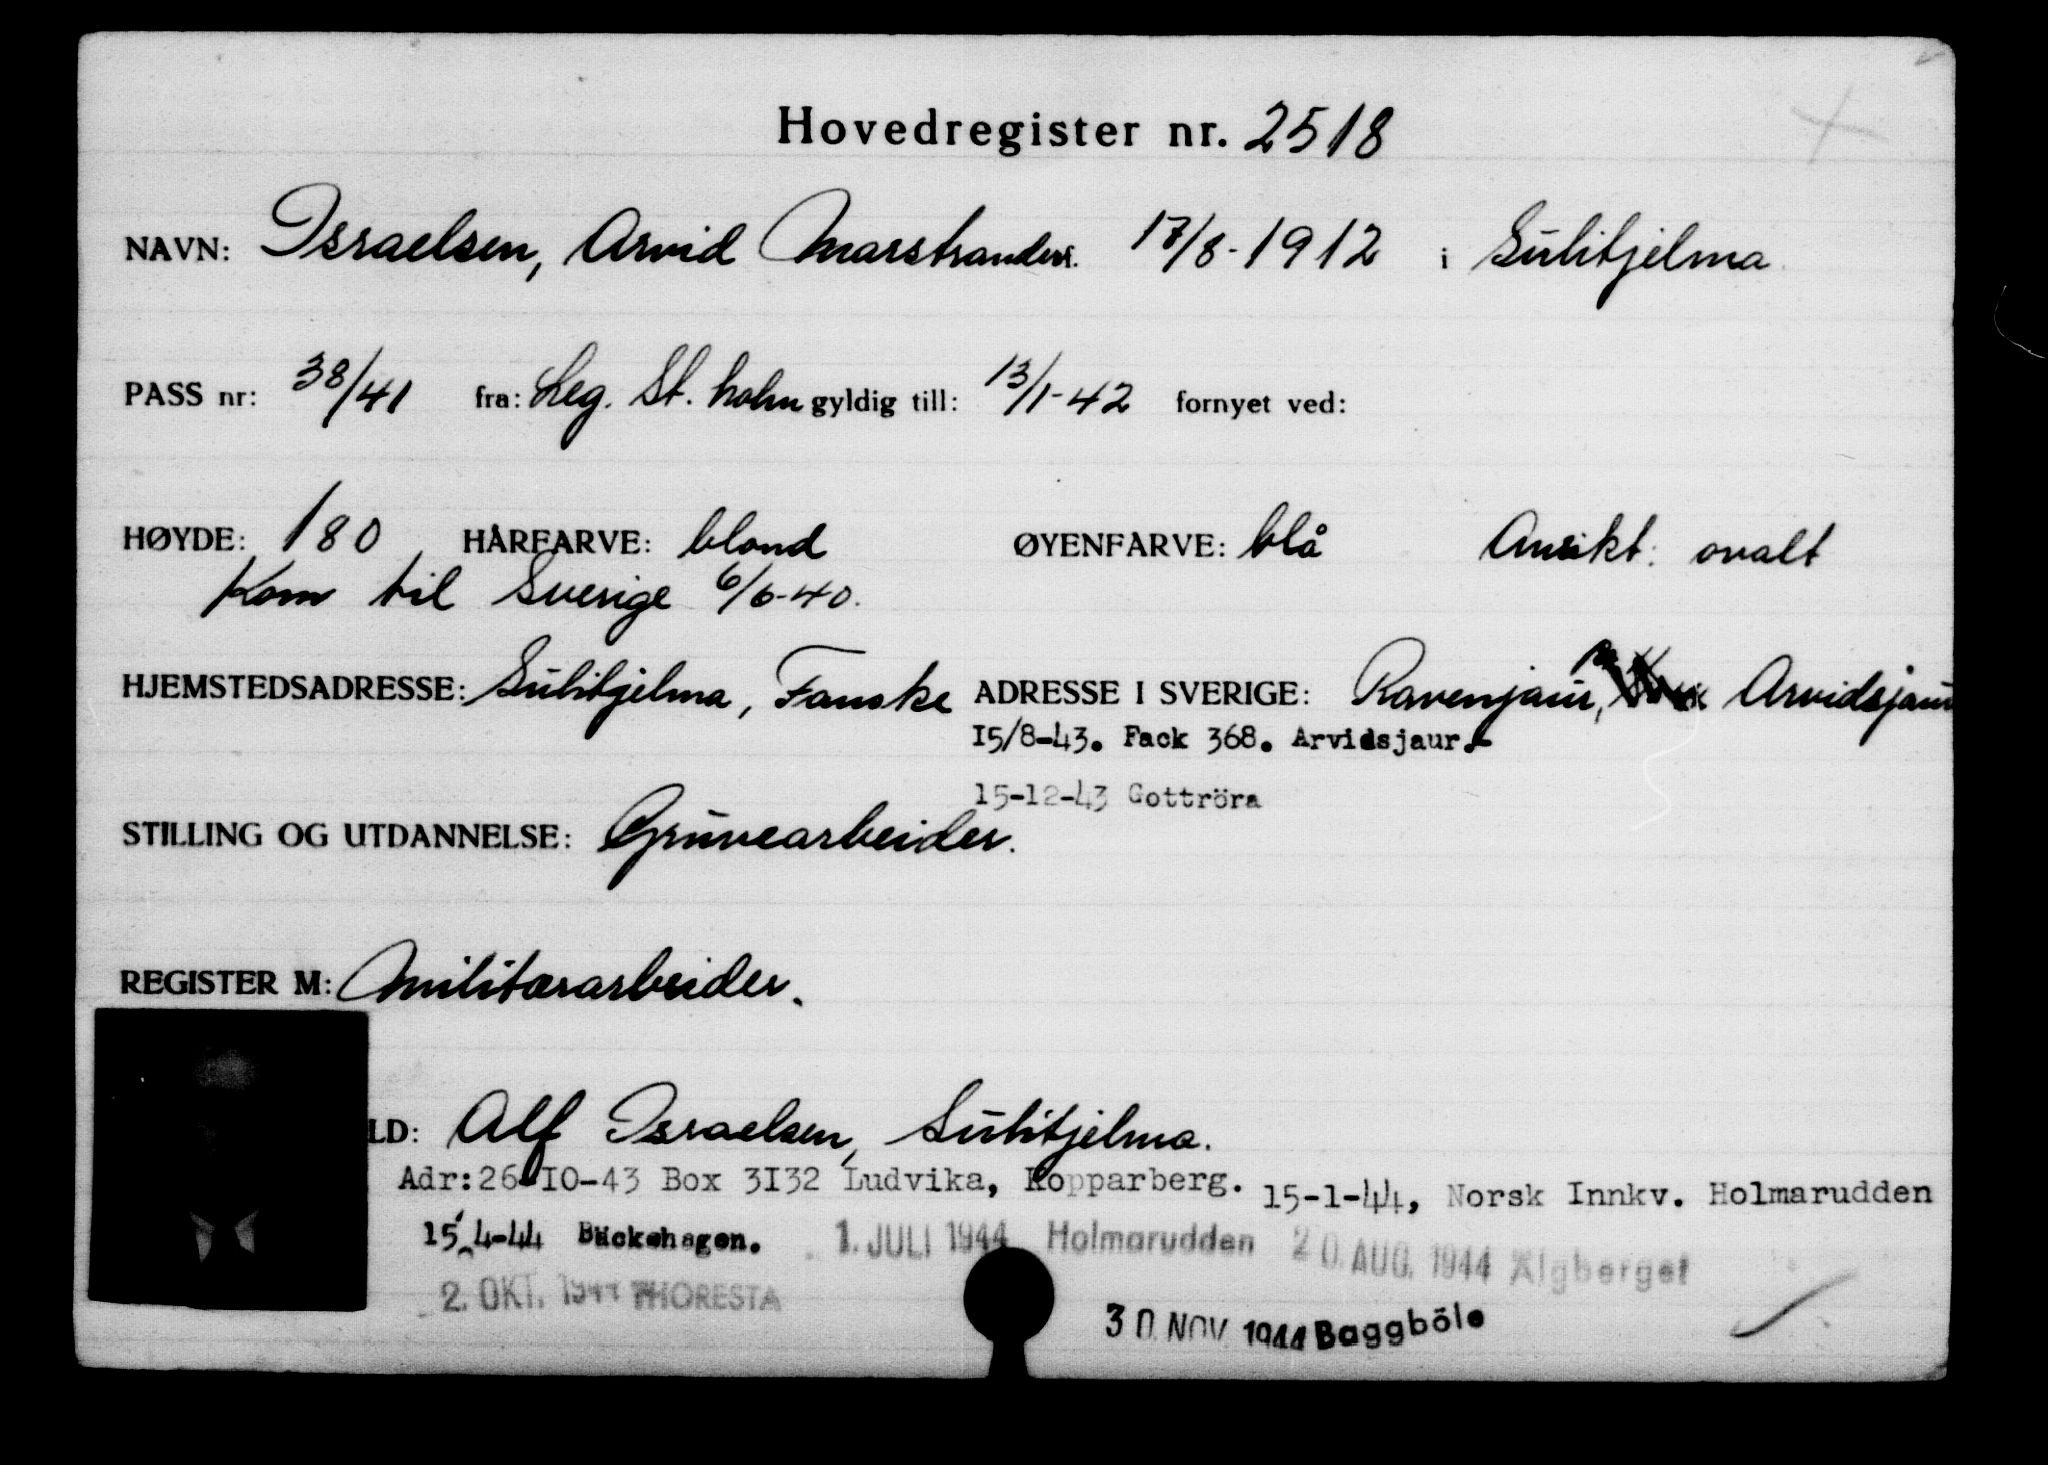 Hovedregister nr. 2518
NAVN: Israelsen, Arvid Marstrander. 17/8-1912 i Sulitjelma
PASS nr: 38/41 fra: Leg. St.holm gyldig till: 13/1-42 fornyet ved:
HØYDE: 180 HÅRFARVE: blond ØYENFARVE: blå Ansikt: ovalt
Kom til Sverige 6/6-40.
HJEMSTEDSADRESSE: Sulitjelma, Fauske ADRESSE I SVERIGE: Ravenjaur, Arvidsjaur
15/8-43. Fack 368. Arvidsjaur.-
15-12-43 Gottröra
STILLING OG UTDANNELSE: Gruvearbeider.
REGISTER M: Militærarbeider.
LD: Alf Israelsen, Sulitjelma.
Adr:26-10-43 Box 3132 Ludvika, Kopparberg. 15-1-44, Norsk Innkv. Holmarudden
15/4-44 Bäckehagen. 1. JULI 1944 Holmarudden 20. AUG. 1944 Älgberget
2. OKT. 1944 THORESTA
30 NOV. 1944 Baggböle